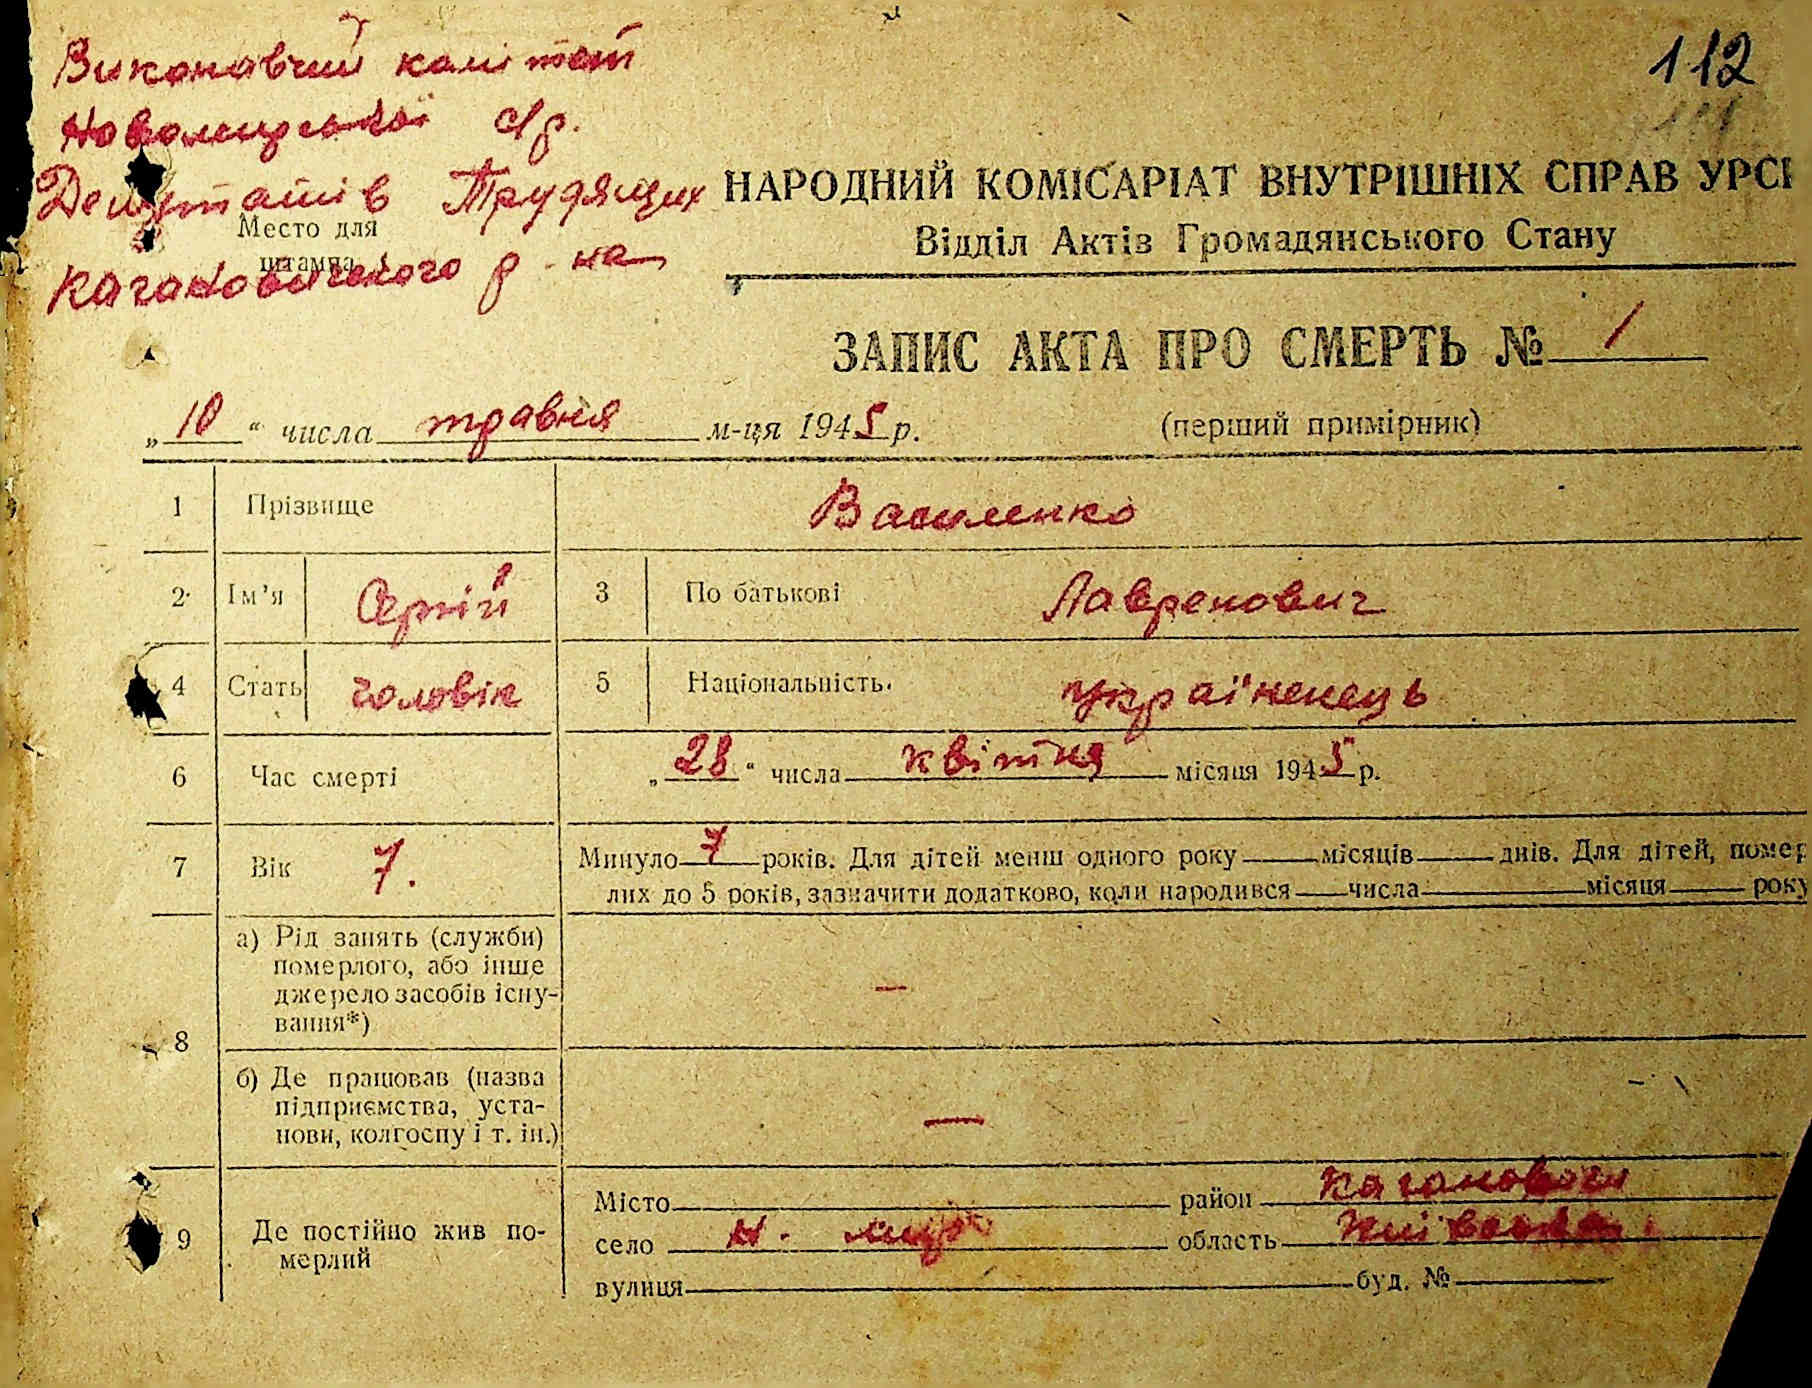 112
Виконавчий комітет
Новомирської с/р.
Депутатів Трудящих
Место для
штампа
Кагановичского р-на
НАРОДНИЙ КОМІСАРІАТ ВНУТРІШНІХ СПРАВ УРСР
Відділ Актів Громадянського Стану
ЗАПИС АКТА ПРО СМЕРТЬ № 1
„10“ числа травня м-ця 1945 р. (перший примірник)
1 Прізвище Василенко
2 Ім'я Сергій 3 По батькові Лавренович
4 Стать чоловік 5 Національність українець
6 Час смерті „28“ числа квітня місяця 1945 р.
7 Вік 7. Минуло 7 років. Для дітей менш одного року — місяців — днів. Для дітей, помер
лих до 5 років, зазначити додатково, коли народився — числа — місяця — року
8 а) Рід занять (служби)
померлого, або інше
джерело засобів існу-
вання*) —
б) Де працював (назва
підприємства, уста-
нови, колгоспу і т. ін.) —
9 Де постійно жив по-
мерлий
Місто район
село Н. Мир область Київська
вулиця буд. №